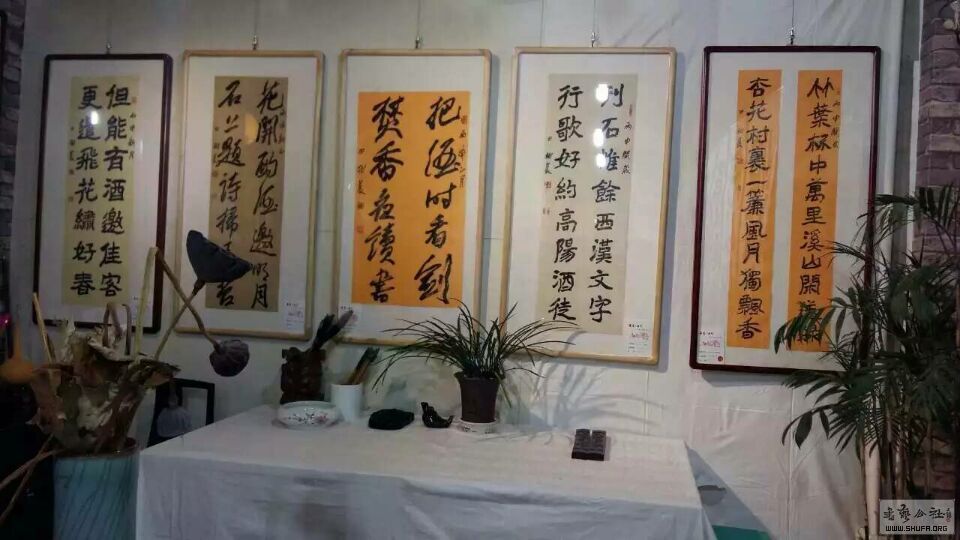 但能有酒邀佳客
更遣飛花繡好春
花開酌酒邀明月
石上題詩掃苔
把酒时看劍
焚香夜讀書
刊石惟餘西漢文字
行歌好約高陽酒徒
竹葉杯中萬里溪山閑綠
杏花村裏一簾風月獨飄香
书艺公社
WWW.SHUFA.ORG